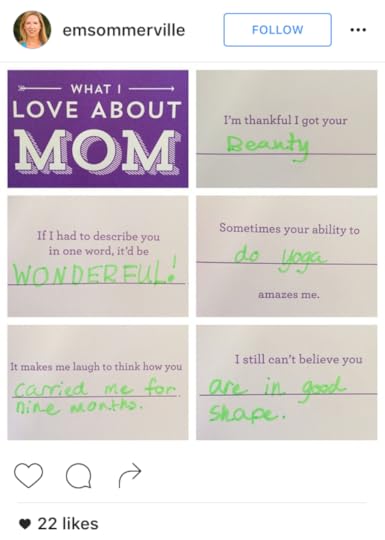 emsommerville
FOLLOW
WHAT I
LOVE ABOUT
MOM
I'm thankful I got your
Beauty
If I had to describe you
in one word, it'd be
WONDERFUL!
Sometimes your ability to
do yoga
amazes me.
It makes me laugh to think how you
carried me for
nine months.
I still can't believe you
are in good
shape.
22 likes